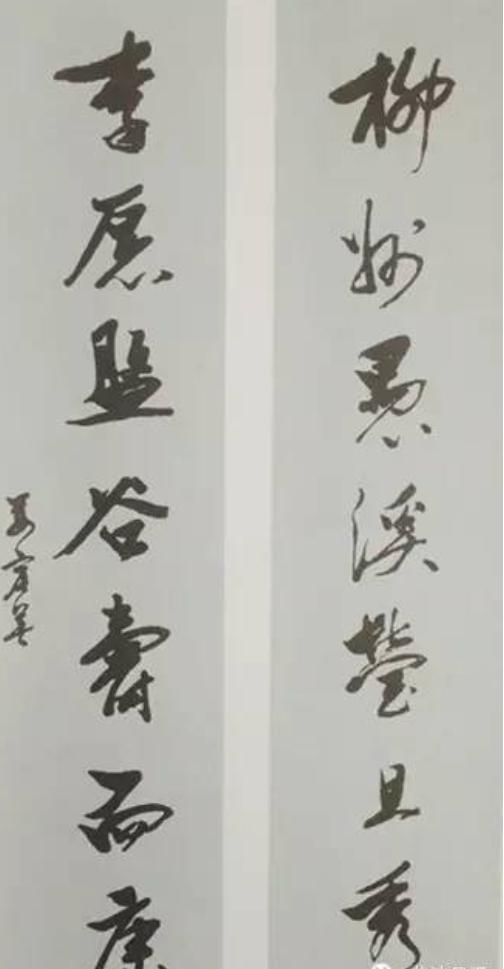 柳州愚溪瑩且秀
李愿盤谷壽而康